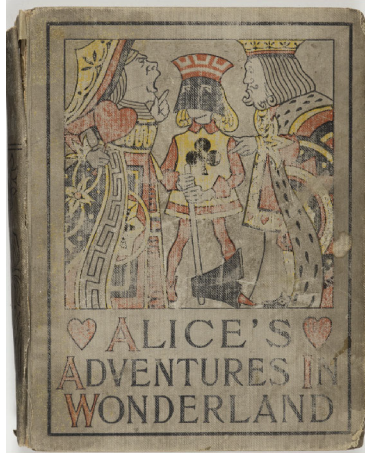 ALICE'S
ADVENTURES IN
WONDERLAND